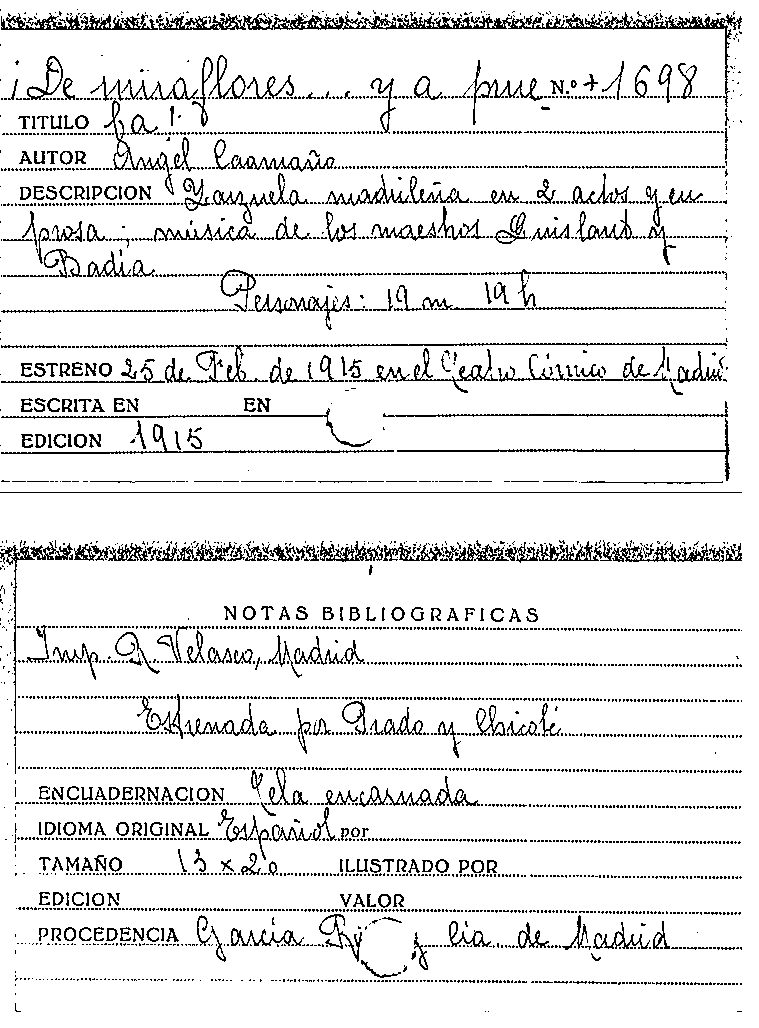 ¡De miraflores... y a prue N.º + 1698
TITULO ba!
AUTOR Angel Caamaño
DESCRIPCION Zarzuela madrileña en 2 actos y en
prosa; música de los maestros Quislant y
Badía
Personajes: 19 m 19 h
ESTRENO 25 de Feb. de 1915 en el Teatro Cómico de Madrid
ESCRITA EN EN
EDICION 1915
NOTAS BIBLIOGRAFICAS
Imp. R. Velasco, Madrid
Estrenada por Prado y Chicote
ENCUADERNACION Tela encarnada
IDIOMA ORIGINAL Español por
TAMAÑO 13 x 20 ILUSTRADO POR
EDICION VALOR
PROCEDENCIA García y Cia. de Madrid